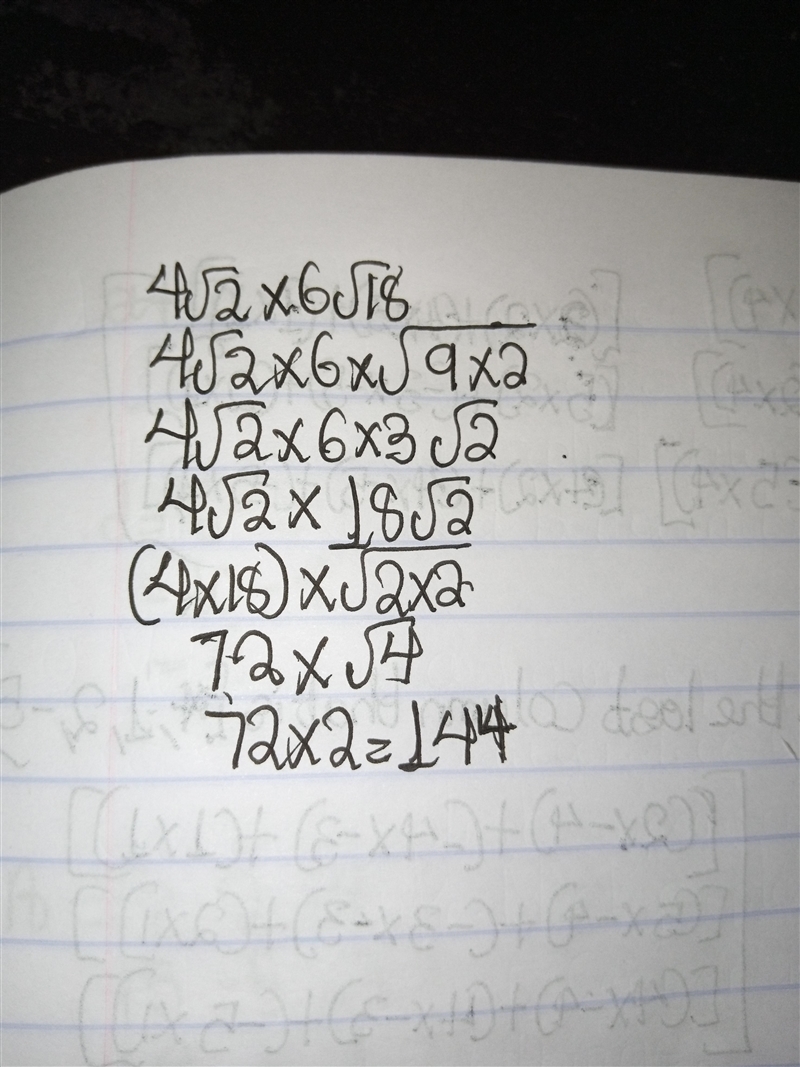 4√2 × 6√18
4√2 × 6 × √9 × 2
4√2 × 6 × 3√2
4√2 × 18√2
(4×18) × √2×2
72 × √4
72×2 = 144